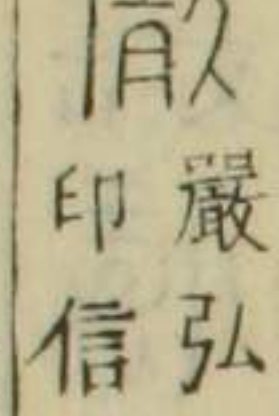 嚴弘
印信